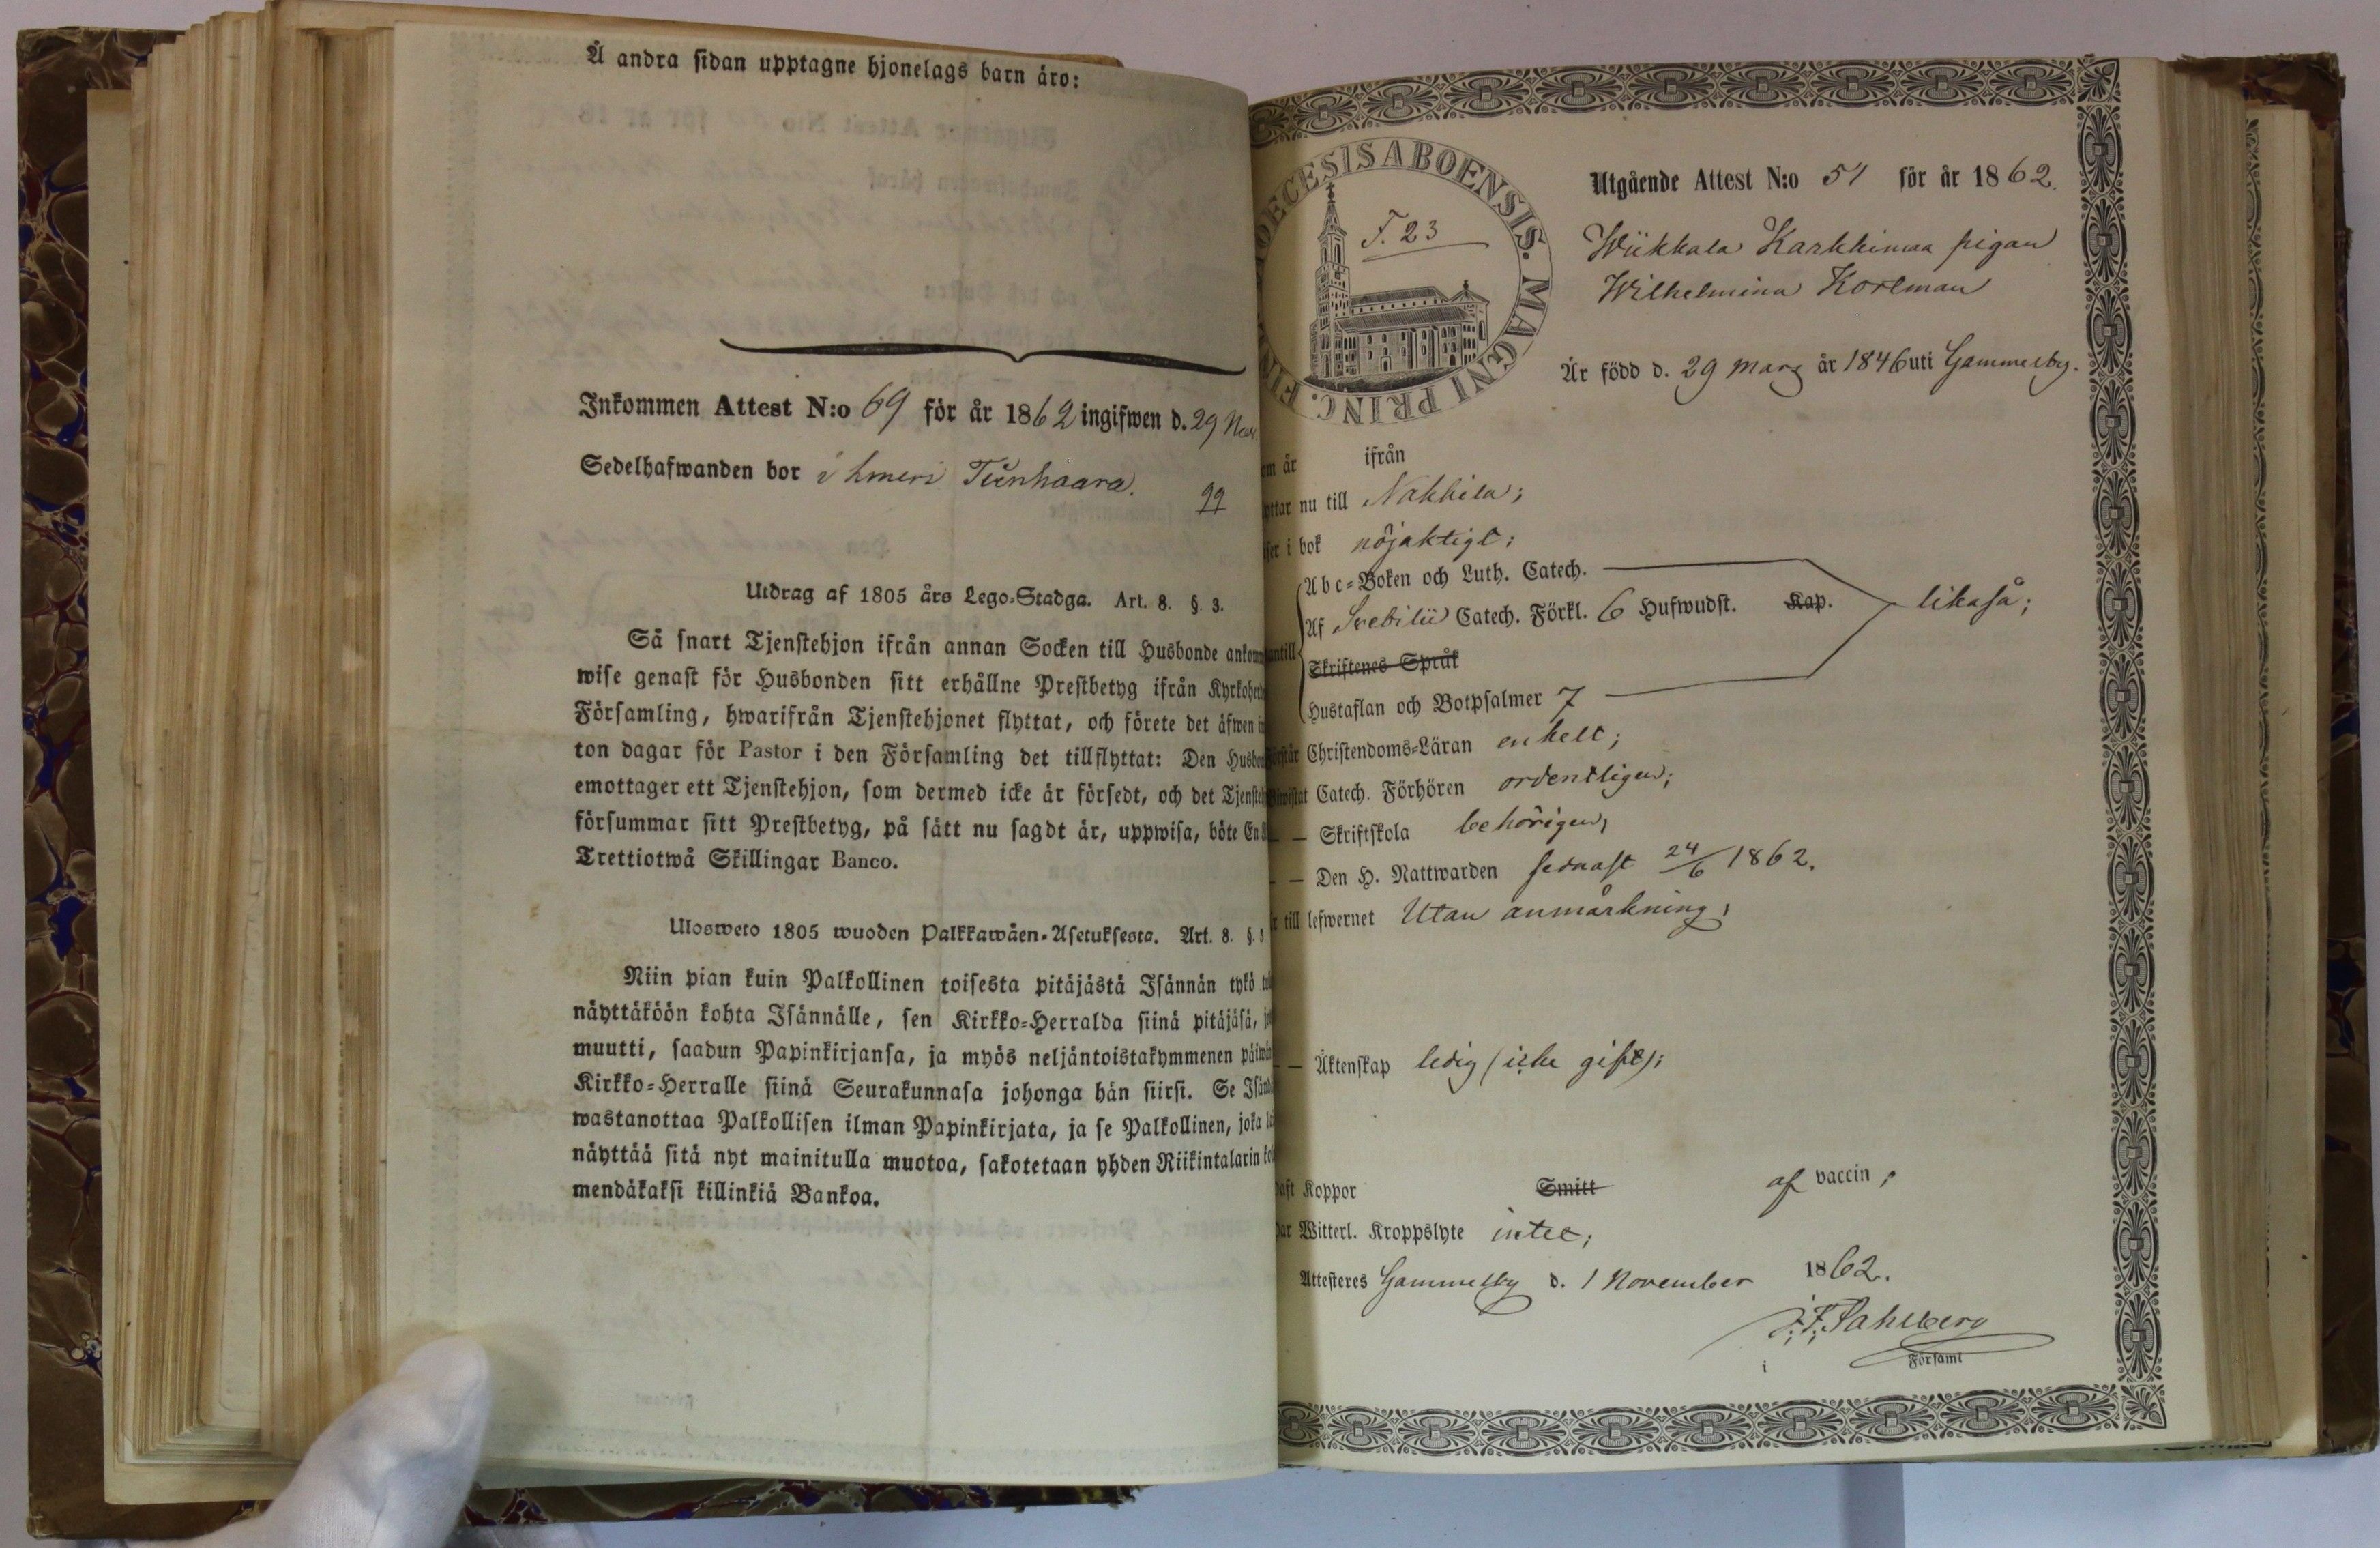 Å andra sidan upptagne hjonelags barn äro:
Inkommen Attest N:o 69 för år 1862 ingifwen d. 29 Nov.
Sedelhafwanden bor i
22
Utdrag af 1805 års Lego-Stadga. Art. 8. §. 3.
Så snart Tjenstehjon ifrån annan Socken till Husbonde ankom
wise genast för Husbonden sitt erhållne Prestbetyg ifrån Kyrkoher
Församling, hwarifrån Tjenstehjonet flyttat, och förete det äfwen in
ton dagar för Pastor i den Församling det tillflyttat: Den Husbon
emottager ett Tjenstehjon, som dermed icke är försedt, och det Tjensteh
försummar sitt Prestbetyg, på sätt nu sagdt är, uppwisa, böte En
Trettiotwå Skillingar Banco.
Ulosweto 1805 wuoden Palkkawäen-Asetuksesta. Art. 8. §. 3
Niin pian kuin Palkollinen toisesta pitäjästä Isännän tykö
näyttäköön kohta Isännälle, sen Kirkko-Herralda siinä pitäjäsä,
muutti, saadun Papinkirjansa, ja myös neljäntoistakymmenen päiwän
Kirkko-Herralle siinä Seurakunnasa johonga hän siirsi. Se Isänd
wastanottaa Palkollisen ilman Papinkirjata, ja se Palkollinen, joka
näyttää sitä nyt mainitulla muotoa, sakotetaan yhden Riikintalarin
mendäkaksi killinkiä Bankoa.
OECESIS ABOENSIS. MAGNI PRINC. FIN
F. 23
Utgående Attest N:o 51 för år 1862.
Wiikkala Karkkimaa pigan
Wilhelmina Korlman
Är född d. 29 Mars år 1846 uti Gammelby.
om år ifrån
yttar nu till Nakkila;
ser i bok nöjaktigt;
Abc-Boken och Luth. Catech.
Af Svebilii Catech. Förkl. 6 Hufwudst. Kap. likaså;
antill
Skriftenes Språk
Hustaflan och Botpsalmer 7
örstår Christendoms-Läran enkelt;
iwistat Catech. Förhören ordentligen;
— — Skriftskola behörigen;
— — Den H. Nattwarden sednast 24/6 1862.
r till lefwernet Utan anmärkning;
— — Äktenskap ledig (icke gift);
aft Koppor Smitt af vaccin;
ar Witterl. Kroppslyte intet;
Attesteres Gammelby d. 1 November 1862.
J. F. Sahlberg
i Församl